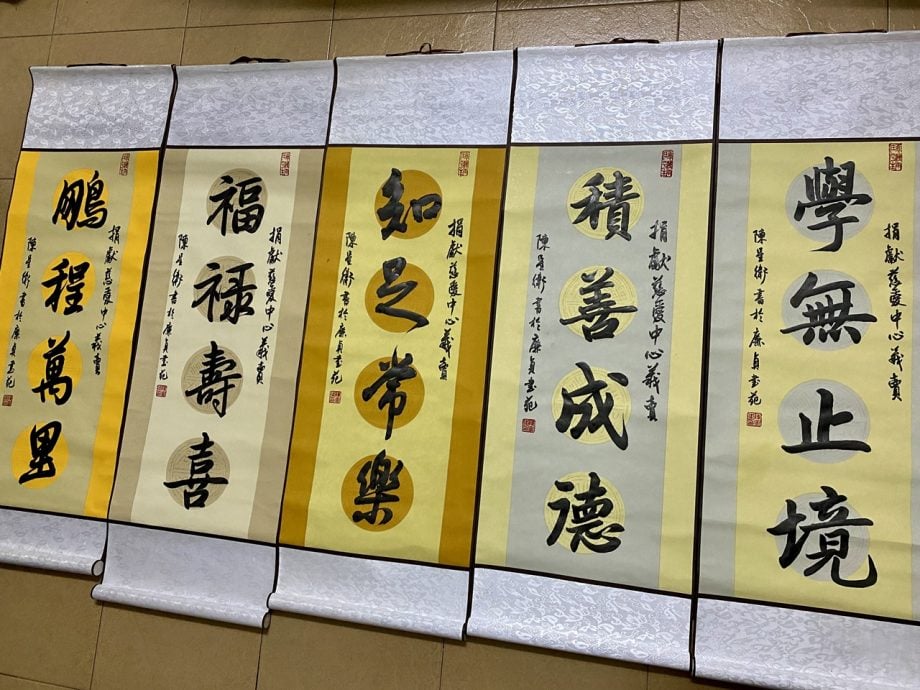 捐獻慈愛中心義賣
學無止境
陳 書於廉貞書苑
捐獻慈愛中心義賣
積善成德
陳 書於廉貞書苑
捐獻慈愛中心義賣
知足常樂
陳 書於廉貞書苑
捐獻慈愛中心義賣
福祿壽喜
陳 書於廉貞書苑
捐獻慈愛中心義賣
鵬程萬里
陳 書於廉貞書苑